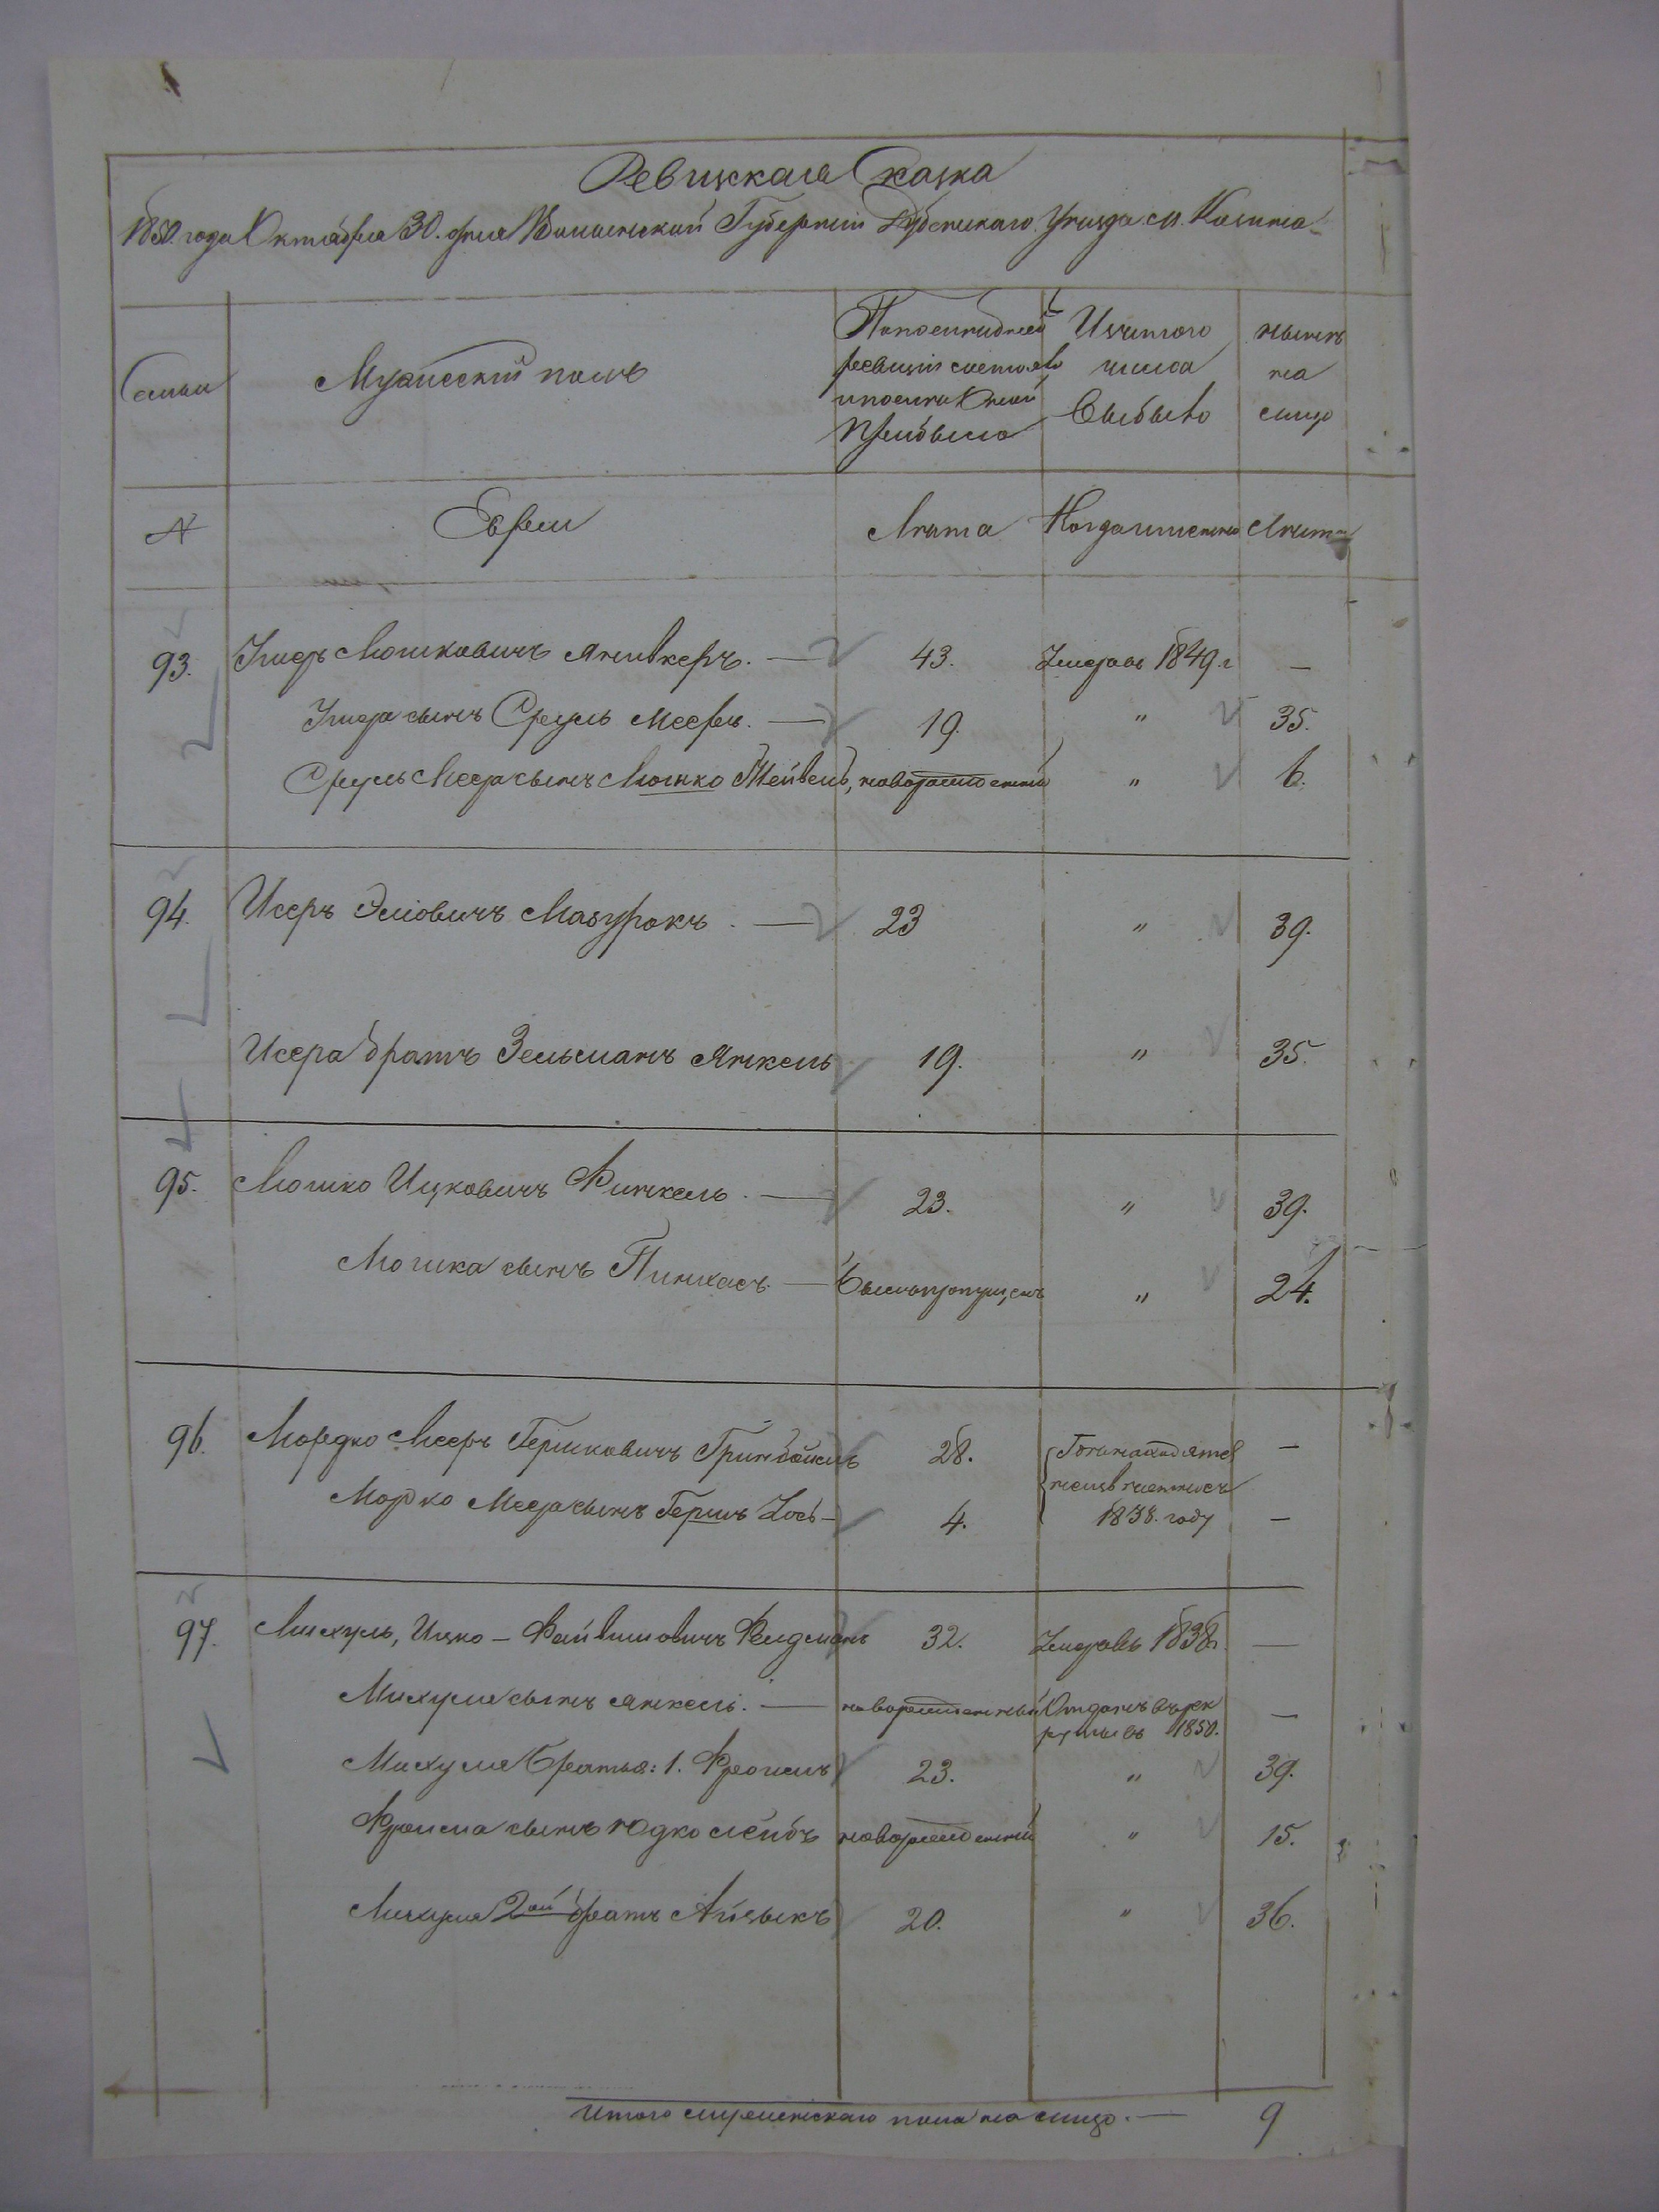 Ревижская Сказка
1850 года Октября 30. дня Волынской Губернии Дубенскаго Уѣзда м. Козина
Семьи
Мужеский полъ
По последней ревизии состояло и после оной прибыло
Изътого числа Выбыло
нынѣ на лицо
№ Евреи Лѣта Когдаименно Лѣта
93. Ицеръ Мошковичъ Анивкеръ. — 43. Умеръвъ 1849.г —
Ицера сынъ Сруль Мееръ. — 19. " 35.
Сруль Меера сынъ Мошко Лейвель, новорожденный " 6.
94. Исеръ Эліовичъ Мазурокъ. — 23 " 39.
Исера братъ Зельманъ Янкель 19. " 35.
95. Мошко Ицковичъ Финкель. — 23. " 39.
Мошка сынъ Пинхасъ. — Былъ пропущенъ " 24.
96. Мордко Мееръ Гершковичъ 28. —
Мордко Меера сынъ Гершъ 4. 1838. году —
97. Михуль, Ицко - Файвишовичъ Фелдманъ 32. Умеръвъ 1838г. —
Михуля сынъ Янкель. — новорожденный Отданъ върек
рутывъ 1850. —
Михуля Братья: 1. Фроимъ 23. " 39.
Фроима сынъ Юдко Лейбъ новорожденный " 15.
Михуля 2ой братъ Айзыкъ 20. " 36.
Итого мужескаго пола на лицо. — 9